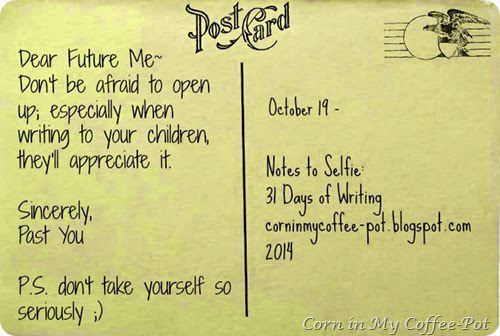 Post Card
Dear Future Me~
Don't be afraid to open
up; especially when
writing to your children,
they'll appreciate it.
Sincerely,
Past You
P.S. don't take yourself so
seriously ;)
October 19 -
Notes to Selfie:
31 Days of Writing
corninmycoffee-pot.blogspot.com
2014
Corn in My Coffee-Pot